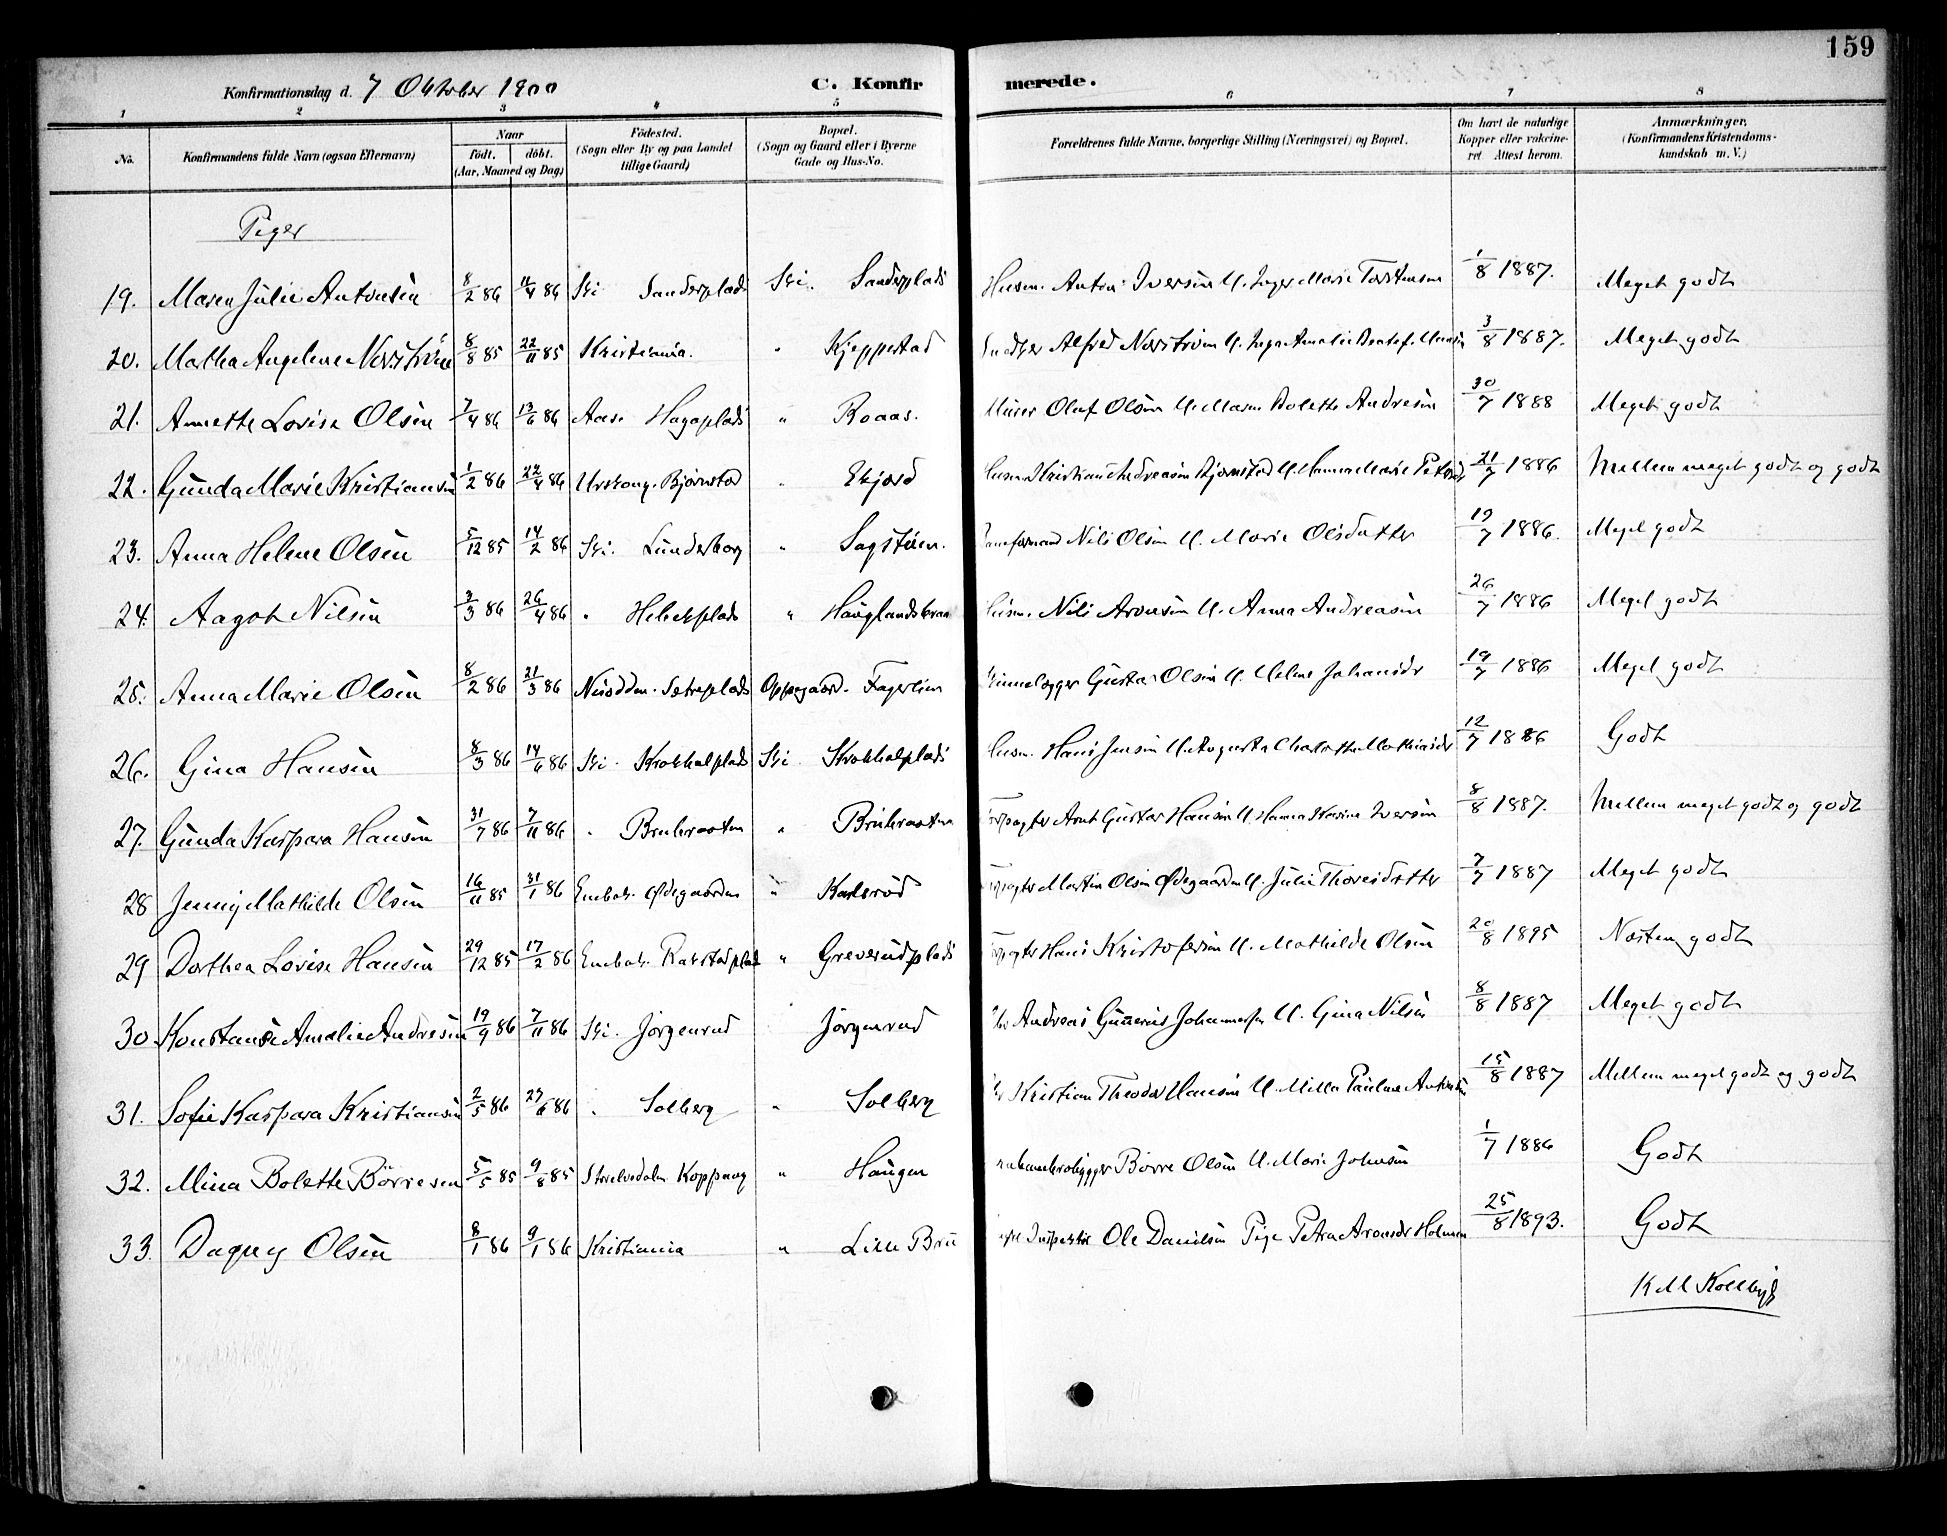 159
Konfirmationsdag d. 7 Oktober 1900 C. Konfir merede.
1 2 3 4 5 6 7 8
No. Konfirmandens fulde Navn (ogsaa Efternavn) Naar født. døbt. (Aar, Maaned og Dag) Födested. (Sogn eller By og paa Landet tillige Gaard) Bopæl. (Sogn og Gaard eller i Byerne Gade og Hus-No. Forældrenes fulde Navne, borgerlige Stilling (Næringsvei) og Bopæl. Om havt de naturlige Kopper eller vakcineret. Attest herom. Anmærkninger, (Konfirmandens Kristendomskundskab m. V.)
Piger
19. Maren Julie Antonsen 8/2 86 11/4 86 Ski Sanderplads Ski. Sanderplads Husm. Anton Iversen U. Inger Marie Torstensen 1/8 1887. Meget godt
20. Martha Angelene Norström 8/8 85 22/11 85 Kristiania. " Kjeppestad Alfred Norström U. Inga Amalie 3/8 1887. Meget godt
21. Annette Lovise Olsen 7/4 86 13/6 86 Aas. Hagaplads " Roaas. Murer Oluf Olsen U. Maren Bolette Andresen 30/7 1888 Meget godt
22. Gunda Marie Kristiansen 1/2 86 22/4 86 Urskoug. Bjørnstad " Ekjord Husm Kristian Andreasen Bjørnstad U. Hanna Marie 21/7 1886 Mellem meget godt og godt
23. Anna Helene Olsen 5/12 85 14/2 86 Ski. Sunderborg " Sagstuen. Nils Olsen U. Marie Olsdatter 19/7 1886. Meget godt
24. Aagot Nilsen 3/3 86 26/4 86 " Hebekplads " Hauglandskraa Husm. Nils Aronsen U. Anna Andreasen 26/7 1886 Meget godt
25. Anna Marie Olsen 8/2 86 21/3 86 Nesodden. Sætreplads Oppegaard. Fagerlien Gustav Olsen U. Helene Johansdr 19/7 1886 Meget godt
26. Gina Hansen 8/3 86 14/6 86 Ski. Krokholplads Ski. Krokholplads Husm. Hans Jensen U. Augusta Charlotte Mathiasdr 12/7 1886 Godt
27. Gunda Kaspara Hansen 31/7 86 7/11 86 " Brukerosten " Brukerosten Forpagter Arnt Gustav Hansen U. Hanna Karine Iversen 8/8 1887. Mellem meget godt og godt
28 Jenny Mathilde Olsen 16/11 85 31/1 86 Enebak. Ødegaarden " Karlsrud Forpagter Martin Olsen Ødegaarden U. Julie Thoresdatter 7/7 1887 Meget godt
29 Dorthea Lovise Hansen 29/12 85 17/2 86 Enebak. Rakstadplad " Greverudplads Forpagter Hans Kristofersen U. Mathilde Olsen 20/8 1895 Næsten godt
30 Konstanse Amalie Andresen 19/9 86 7/11 86 Ski. Jörgenrud Jörgenrud Andreas Gunerius Johannessen U. Gina Nilsen 8/8 1887 Meget godt
31. Sofie Kaspara Kristiansen 2/5 86 27/6 86 " Solberg " Solberg Kristian Theodor Hansen U. Milla Pauline Antonsen 15/8 1887 Mellem meget godt og godt
32. Mina Bolette Börresen 5/5 85 9/8 85 Storelvedalen Koppang " Haugen Börre Olsen U. Marie Johnsen 1/7 1886 Godt
33. Dagny Olsen 8/1 86 9/1 86 Kristiania " Lille Bru Inspektör Ole Danielsen Pige Petra Aronsdr Holmen 25/8 1893. Godt